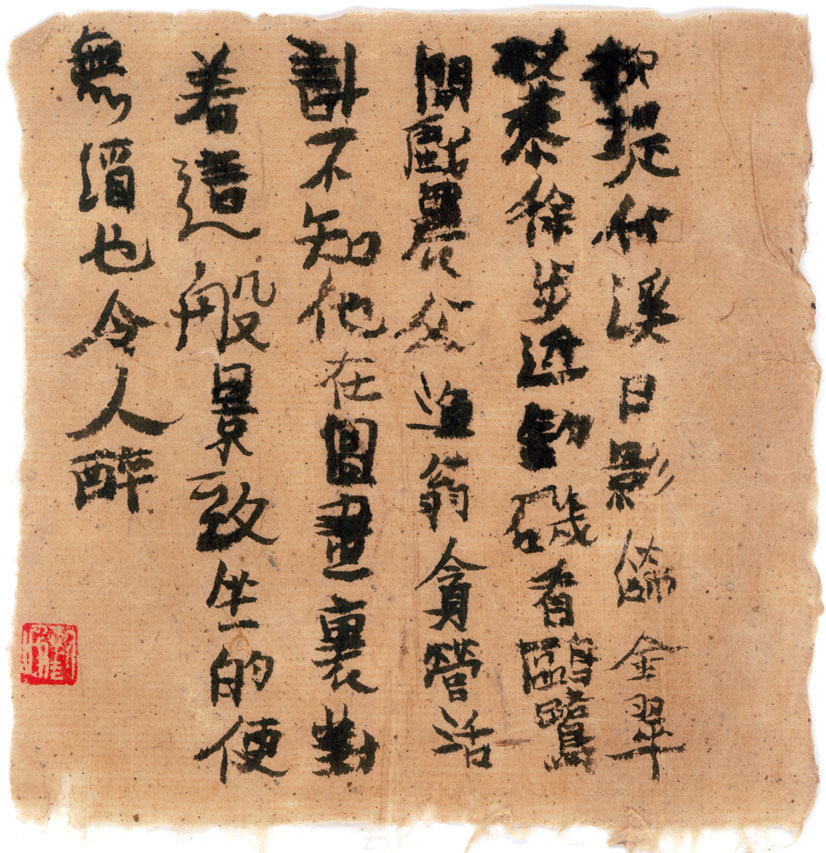 柳堤竹溪日影篩金翠
杖藜徐步近釣磯看鷗鷺
閑戲農父漁翁貪營活
計不知他在圖畫裏對
着這般景致坐的便
無酒也令人醉